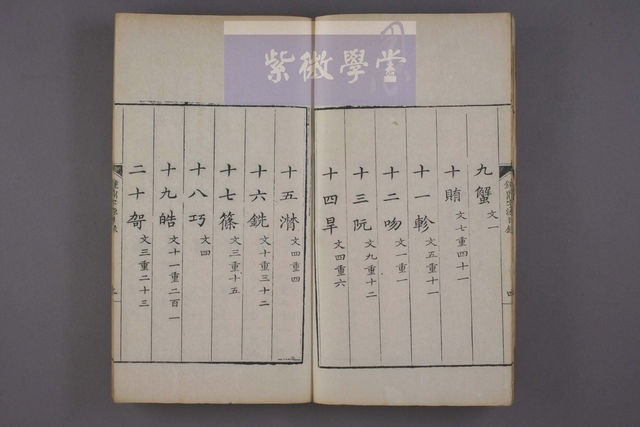 紫微學堂
九蟹文一
十賄文七重四十一
十一軫文五重十一
十二吻文一重一
十三阮文九重十二
十四旱文四重六
十五潸文四重四
十六銑文十重三十二
十七篠文三重十五
十八巧文四
十九皓文十一重二百一
二十哿文三重二十三